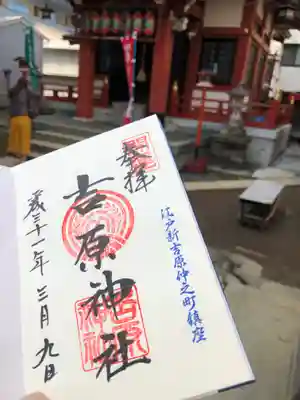 奉拝
江戸新吉原仲之町鎮座
吉原神社
歳三十一年三月九日